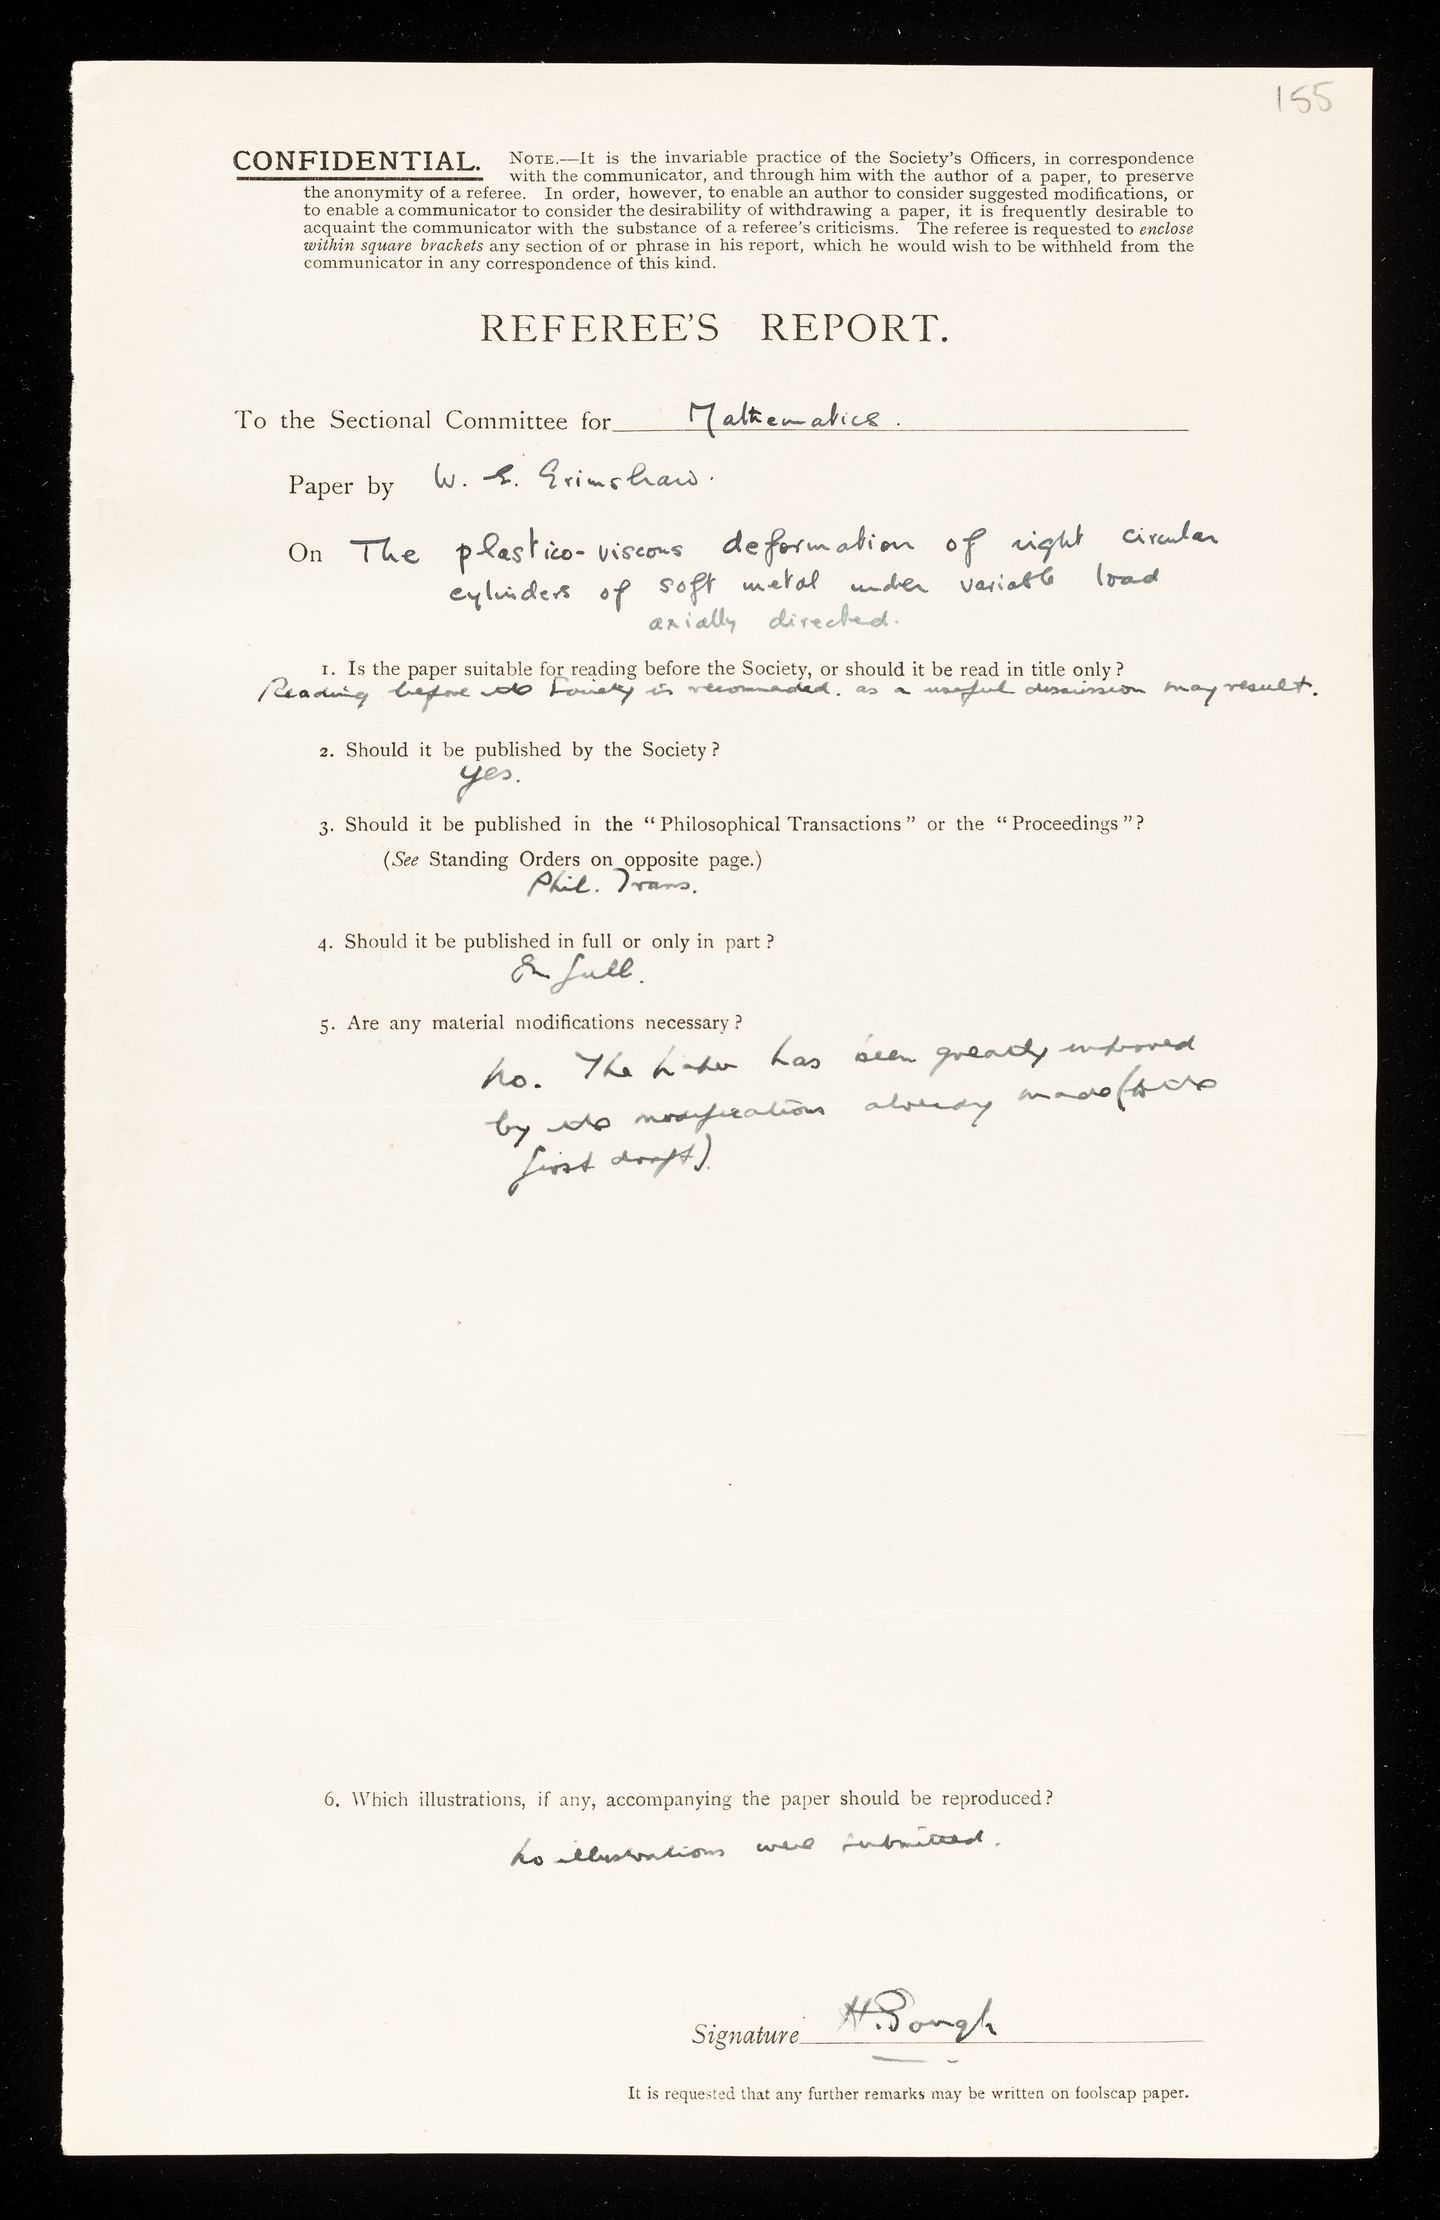 155
CONFIDENTIAL. NOTE.—It is the invariable practice of the Society's Officers, in correspondence
with the communicator, and through him with the author of a paper, to preserve
the anonymity of a referee. In order, however, to enable an author to consider suggested modifications, or
to enable a communicator to consider the desirability of withdrawing a paper, it is frequently desirable to
acquaint the communicator with the substance of a referee's criticisms. The referee is requested to enclose
within square brackets any section of or phrase in his report, which he would wish to be withheld from the
communicator in any correspondence of this kind.
REFEREE'S REPORT.
To the Sectional Committee for Mathematics.
Paper by W. E. Grimshaw.
On The plastico-viscous deformation of right circular
cylinders of soft metal under variable load
axially directed.
1. Is the paper suitable for reading before the Society, or should it be read in title only?
Reading before the Society is recommended. as a useful discussion may result.
2. Should it be published by the Society?
Yes.
3. Should it be published in the "Philosophical Transactions" or the "Proceedings"?
(See Standing Orders on opposite page.)
Phil. Trans.
4. Should it be published in full or only in part?
In full.
5. Are any material modifications necessary?
No. The paper has been greatly improved
by the modifications already made (to the
first draft).
6. Which illustrations, if any, accompanying the paper should be reproduced?
No illustrations were submitted.
Signature H. Gough
It is requested that any further remarks may be written on foolscap paper.